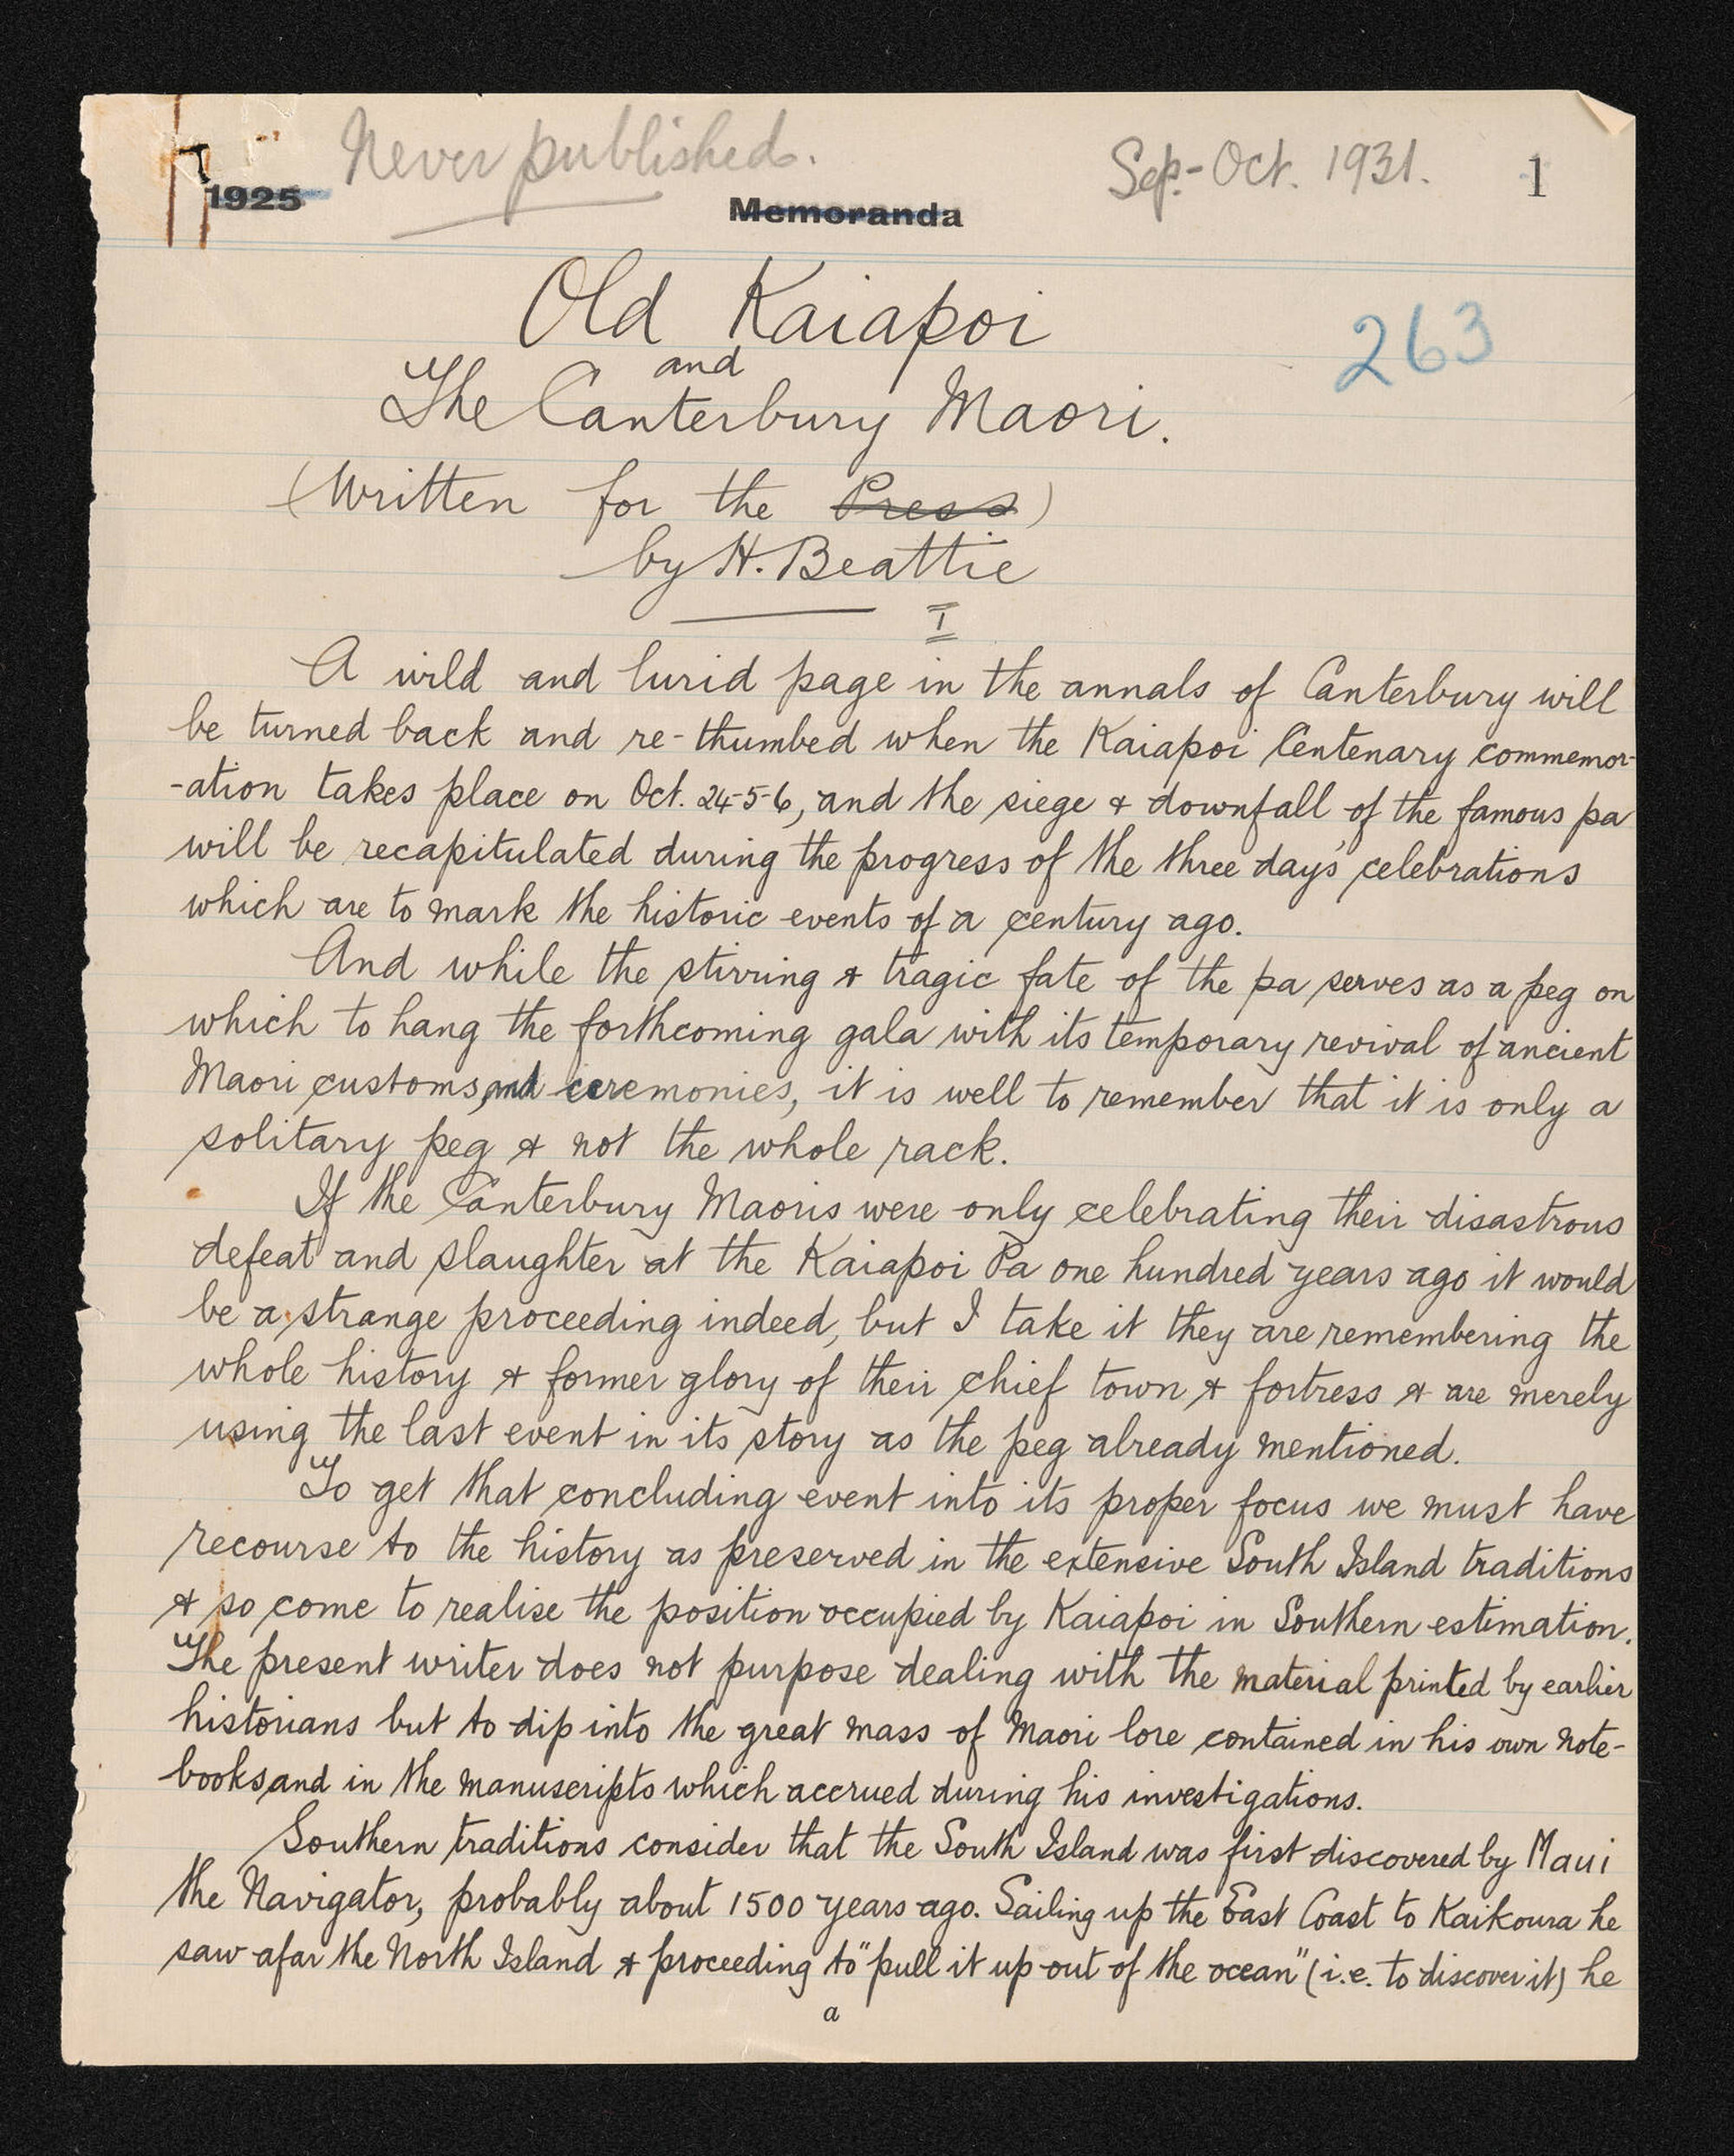 Never published.
Sep.-Oct. 1931.
1
1925
Memoranda
Old Kaiapoi
and
The Canterbury Maori.
263
(Written for the Press)
by H. Beattie
I
A wild and lurid page in the annals of Canterbury will
be turned back and re-thumbed when the Kaiapoi Centenary commemor-
-ation takes place on Oct. 24-5-6, and the siege & downfall of the famous pa
will be recapitulated during the progress of the three day's celebrations
which are to mark the historic events of a century ago.
And while the stirring & tragic fate of the pa serves as a peg on
which to hang the forthcoming gala with its temporary revival of ancient
Maori customs, and ceremonies, it is well to remember that it is only a
solitary peg & not the whole rack.
If the Canterbury Maoris were only celebrating their disastrous
defeat and slaughter at the Kaiapoi Pa one hundred years ago it would
be a strange proceeding indeed, but I take it they are remembering the
whole history & former glory of their chief town & fortress & are merely
using the last event in its story as the peg already mentioned.
To get that concluding event into its proper focus we must have
recourse to the history as preserved in the extensive South Island traditions
& so come to realise the position occupied by Kaiapoi in Southern estimation.
The present writer does not purpose dealing with the material printed by earlier
historians but to dip into the great mass of Maori lore contained in his own note-
books and in the manuscripts which accrued during his investigations.
Southern traditions consider that the South Island was first discovered by Maui
the Navigator, probably about 1500 years ago. Sailing up the East Coast to Kaikoura he
saw afar the North Island & proceeding to "pull it up out of the ocean" (i.e. to discover it) he
a